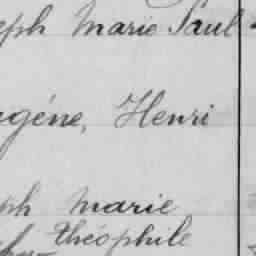 eph Marie Paul
gène, Henri
ph Marie
théophile